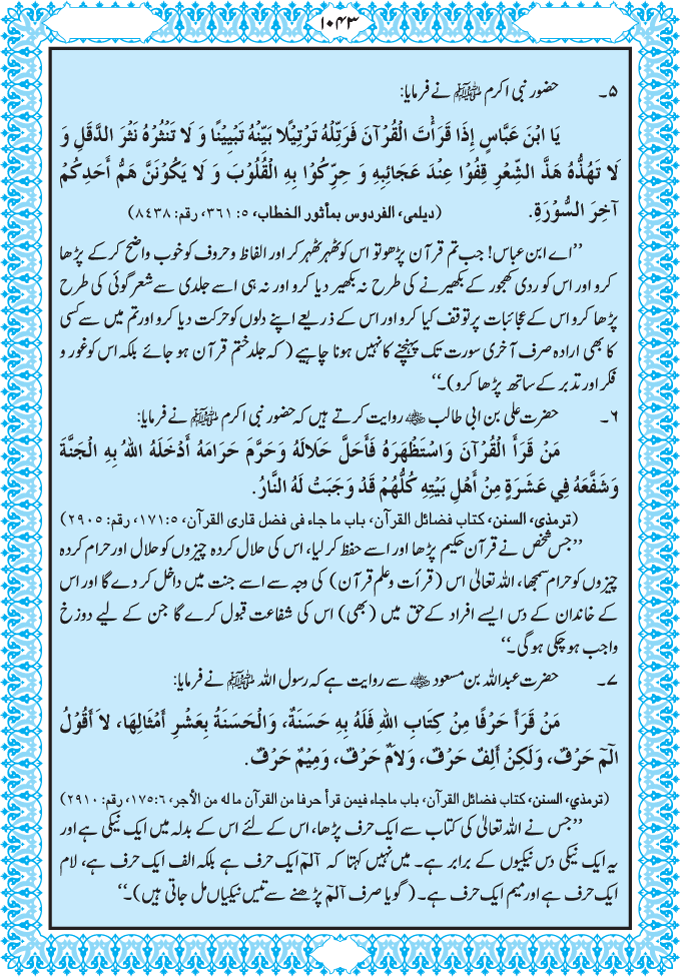 ۱۰۴۳
۵۔ حضور نبی اکرم ﷺ نے فرمایا:
يَا ابْنَ عَبَّاسٍ إِذَا قَرَأْتَ الْقُرْآنَ فَرَتِّلْهُ تَرْتِيْلًا بَيِّنْهُ تَبْيِيْنًا وَ لَا تَنْثُرْهُ نَثْرَ الدَّقَلِ وَ
لَا تَهُذُّهُ هَذَّ الشِّعْرِ قِفُوْا عِنْدَ عَجَائِبِهِ وَ حَرِّكُوْا بِهِ الْقُلُوْبَ وَ لَا يَكُوْنَنَّ هَمُّ أَحَدِكُمْ
آخِرَ السُّوْرَةِ. (دیلمی، الفردوس بمأثور الخطاب، ۵: ۳۶۱، رقم: ۸۴۳۸)
’’اے ابن عباس! جب تم قرآن پڑھو تو اس کو ٹھہر ٹھہر کر اور الفاظ و حروف کو خوب واضح کر کے پڑھا
کرو اور اس کو ردی کھجور کے بکھیرنے کی طرح نہ بکھیر دیا کرو اور نہ ہی اسے جلدی سے شعر گوئی کی طرح
پڑھا کرو اس کے عجائبات پر توقف کیا کرو اور اس کے ذریعے اپنے دلوں کو حرکت دیا کرو اور تم میں سے کسی
کا بھی ارادہ صرف آخری سورت تک پہنچنے کا نہیں ہونا چاہیے (کہ جلد ختم قرآن ہو جائے بلکہ اس کو غور و
فکر اور تدبر کے ساتھ پڑھا کرو)۔‘‘
۶۔ حضرت علی بن ابی طالب ؓ روایت کرتے ہیں کہ حضور نبی اکرم ﷺ نے فرمایا:
مَنْ قَرَأَ الْقُرْآنَ وَاسْتَظْهَرَهُ فَأَحَلَّ حَلَالَهُ وَحَرَّمَ حَرَامَهُ أَدْخَلَهُ اللهُ بِهِ الْجَنَّةَ
وَشَفَّعَهُ فِي عَشَرَةٍ مِنْ أَهْلِ بَيْتِهِ كُلُّهُمْ قَدْ وَجَبَتْ لَهُ النَّارُ.
(ترمذی، السنن، کتاب فضائل القرآن، باب ما جاء فی فضل قاری القرآن، ۵: ۱۷۱، رقم: ۲۹۰۵)
’’جس شخص نے قرآن حکیم پڑھا اور اسے حفظ کر لیا، اس کی حلال کردہ چیزوں کو حلال اور حرام کردہ
چیزوں کو حرام سمجھا، اللہ تعالیٰ اس (قرأت و علم قرآن) کی وجہ سے اسے جنت میں داخل کر دے گا اور اس
کے خاندان کے دس ایسے افراد کے حق میں (بھی) اس کی شفاعت قبول کرے گا جن کے لیے دوزخ
واجب ہو چکی ہوگی۔‘‘
۷۔ حضرت عبد اللہ بن مسعود ؓ سے روایت ہے کہ رسول اللہ ﷺ نے فرمایا:
مَنْ قَرَأَ حَرْفًا مِنْ كِتَابِ اللهِ فَلَهُ بِهِ حَسَنَةٌ، وَالْحَسَنَةُ بِعَشْرِ أَمْثَالِهَا، لاَ أَقُوْلُ
الٓمٓ حَرْفٌ، وَلَكِنْ أَلِفٌ حَرْفٌ، وَلاَمٌ حَرْفٌ، وَمِيْمٌ حَرْفٌ.
(ترمذی، السنن، کتاب فضائل القرآن، باب ماجاء فیمن قرأ حرفا من القرآن ما له من الأجر، ۶: ۱۷۵، رقم: ۲۹۱۰)
’’جس نے اللہ تعالیٰ کی کتاب سے ایک حرف پڑھا، اس کے لئے اس کے بدلہ میں ایک نیکی ہے اور
یہ ایک نیکی دس نیکیوں کے برابر ہے۔ میں نہیں کہتا کہ الٓمٓ ایک حرف ہے بلکہ الف ایک حرف ہے، لام
ایک حرف ہے اور میم ایک حرف ہے۔ (گویا صرف الٓمٓ پڑھنے سے تیس نیکیاں مل جاتی ہیں)۔‘‘